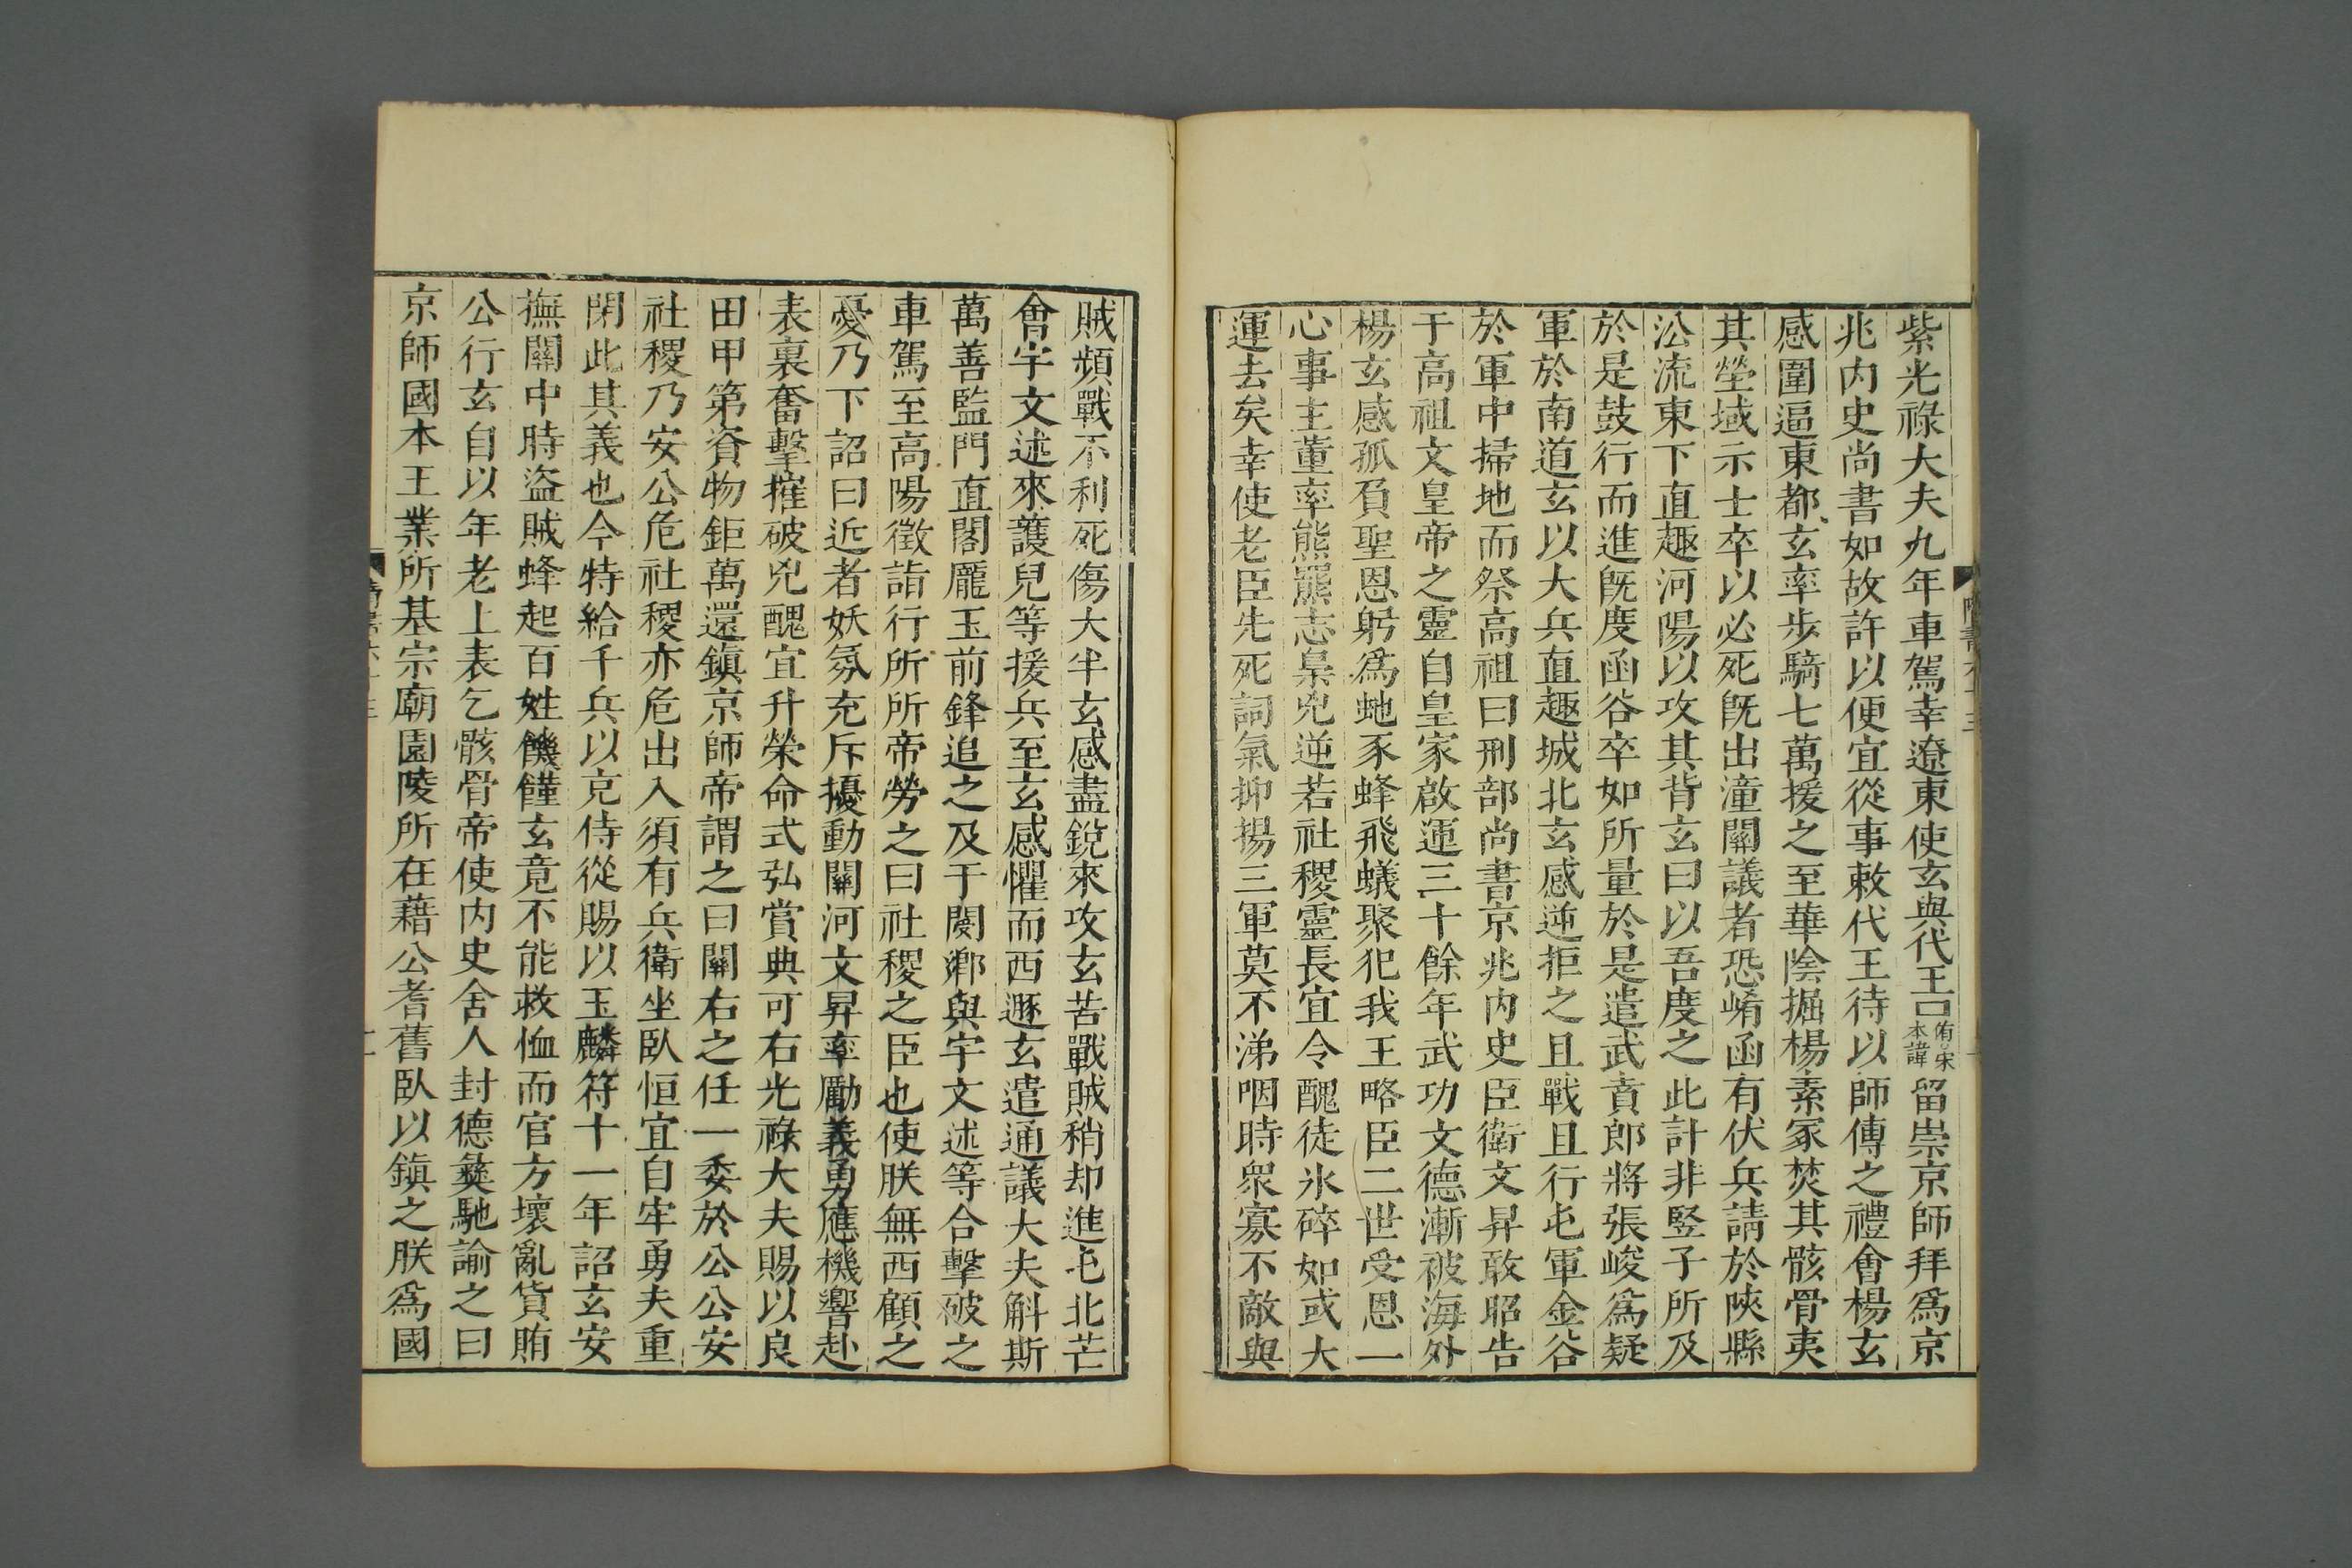 紫光祿大夫九年車駕幸遼東使玄與代王口侑宋本諱留崇京師拜爲京
兆内史尚書如故許以便宜從事敕代王待以師傅之禮會楊玄
感圍逼東都玄率步騎七萬援之至華陰掘楊素冢焚其骸骨夷
其塋域示士卒以必死旣出潼關議者恐崤函有伏兵請於陝縣
沿流東下直趣河陽以攻其背玄曰以吾度之此計非竪子所及
於是鼓行而進旣度函谷卒如所量於是遣武賁郎將張峻爲疑
軍於南道玄以大兵直趣城北玄感逆拒之且戰且行屯軍金谷
於軍中掃地而祭高祖曰刑部尚書京兆内史臣衛文昇敢昭告
于高祖文皇帝之靈自皇家啟運三十餘年武功文德漸被海外
楊玄感孤負聖恩躬爲虵豕蜂飛蟻聚犯我王略臣二世受恩一
心事主董率熊羆志梟兇逆若社稷靈長宜令醜徒氷碎如或大
運去矣幸使老臣先死詞氣抑揚三軍莫不涕咽時衆寡不敵與
賊頻戰不利死傷大半玄感盡銳來攻玄苦戰賊稍却進屯北芒
會宇文述來護兒等援兵至玄感懼而西遯玄遣通議大夫斛斯
萬善監門直閤龐玉前鋒追之及于閿鄉與宇文述等合擊破之
車駕至高陽徵詣行所所帝勞之曰社稷之臣也使朕無西顧之
憂乃下詔曰近者妖氛充斥擾動關河文昇率勵義勇應機響赴
表裏奮擊摧破兇醜宜升榮命式弘賞典可右光祿大夫賜以良
田甲第資物鉅萬還鎭京師帝謂之曰關右之任一委於公公安
社稷乃安公危社稷亦危出入須有兵衛坐臥恒宜自牢勇夫重
閉此其義也今特給千兵以充侍從賜以玉麟符十一年詔玄安
撫關中時盜賊蜂起百姓饑饉玄竟不能救恤而官方壞亂貨賄
公行玄自以年老上表乞骸骨帝使内史舍人封德彝馳諭之曰
京師國本王業所基宗廟園陵所在藉公耆舊臥以鎭之朕爲國